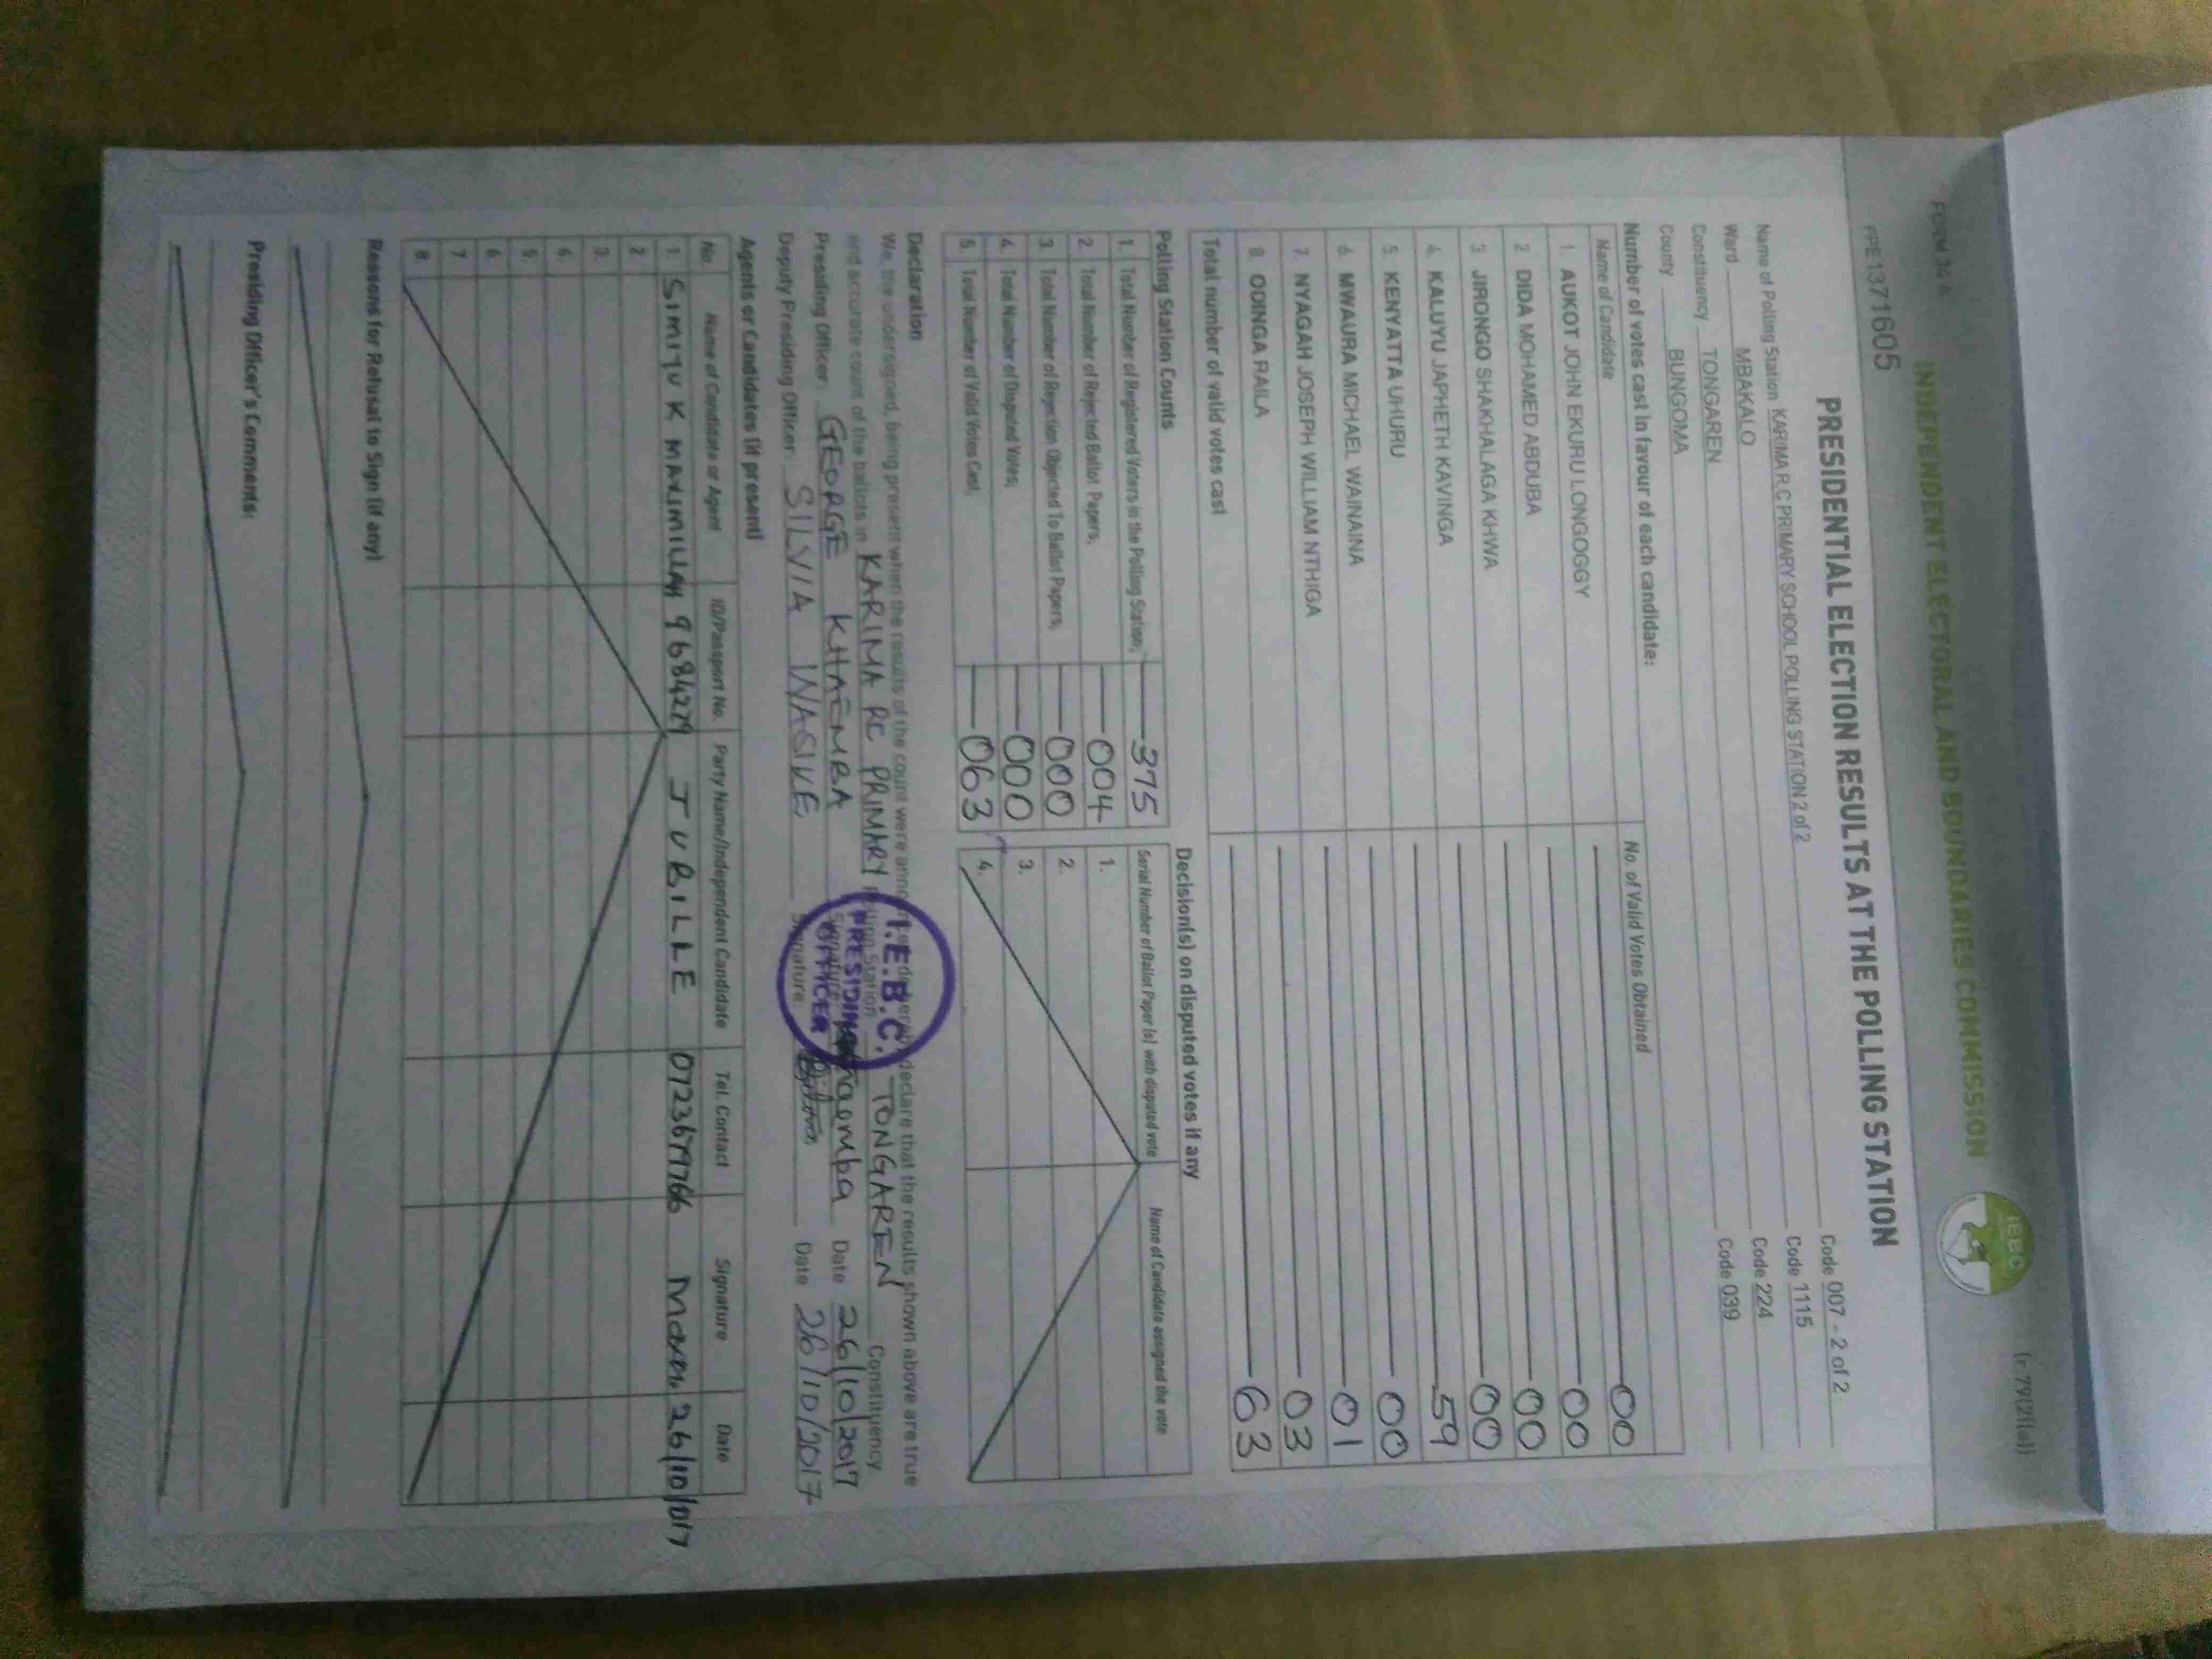 FORM 34A
(r.79(2)(a))
INDEPENDENT ELECTORAL AND BOUNDARIES COMMISSION
IEBC
PE 1371605
PRESIDENTIAL ELECTION RESULTS AT THE POLLING STATION
Name of Polling Station KARIMA R.C PRIMARY SCHOOL POLLING STATION 2 of 2 Code 007 - 2 of 2
Ward MBAKALO Code 1115
Constituency TONGAREN Code 224
County BUNGOMA Code 039
Number of votes cast in favour of each candidate:
Name of Candidate No. of Valid Votes Obtained
1. AUKOT JOHN EKURU LONGOGGY 00
2. DIDA MOHAMED ABDUBA 00
3. JIRONGO SHAKHALAGA KHWA 00
4. KALUYU JAPHETH KAVINGA 00
5. KENYATTA UHURU 59
6. MWAURA MICHAEL WAINAINA 00
7. NYAGAH JOSEPH WILLIAM NTHIGA 01
8. ODINGA RAILA 03
Total number of valid votes cast 63
Polling Station Counts
1. Total Number of Registered Voters in the Polling Station; 375
2. Total Number of Rejected Ballot Papers; 004
3. Total Number of Rejection Objected To Ballot Papers; 000
4. Total Number of Disputed Votes; 000
5. Total Number of Valid Votes Cast; 063
Decision(s) on disputed votes if any
Serial Number of Ballot Paper (s) with disputed vote Name of Candidate assigned the vote
1.
2.
3.
4.
Declaration
We, the undersigned, being present when the results of the count were declare that the results shown above are true
and accurate count of the ballots in KARIMA RC PRIMARY Polling Station TONGAREN Constituency
Presiding Officer: GEORGE KHAEMBA Signature Khaemba Date 26/10/2017
Deputy Presiding Officer: SILVIA WASIKE Signature Date 26/10/2017
I.E.B.C.
PRESIDING
OFFICER
Agents or Candidates (if present)
No. Name of Candidate or Agent ID/Passport No. Party Name/Independent Candidate Tel. Contact Signature Date
1. SIMIYU K MAXIMILLAH 9684279 JUBILLE 0723679766 26/10/017
2.
3.
4.
5.
6.
7.
8.
Reasons for Refusal to Sign (if any)
Presiding Officer's Comments: